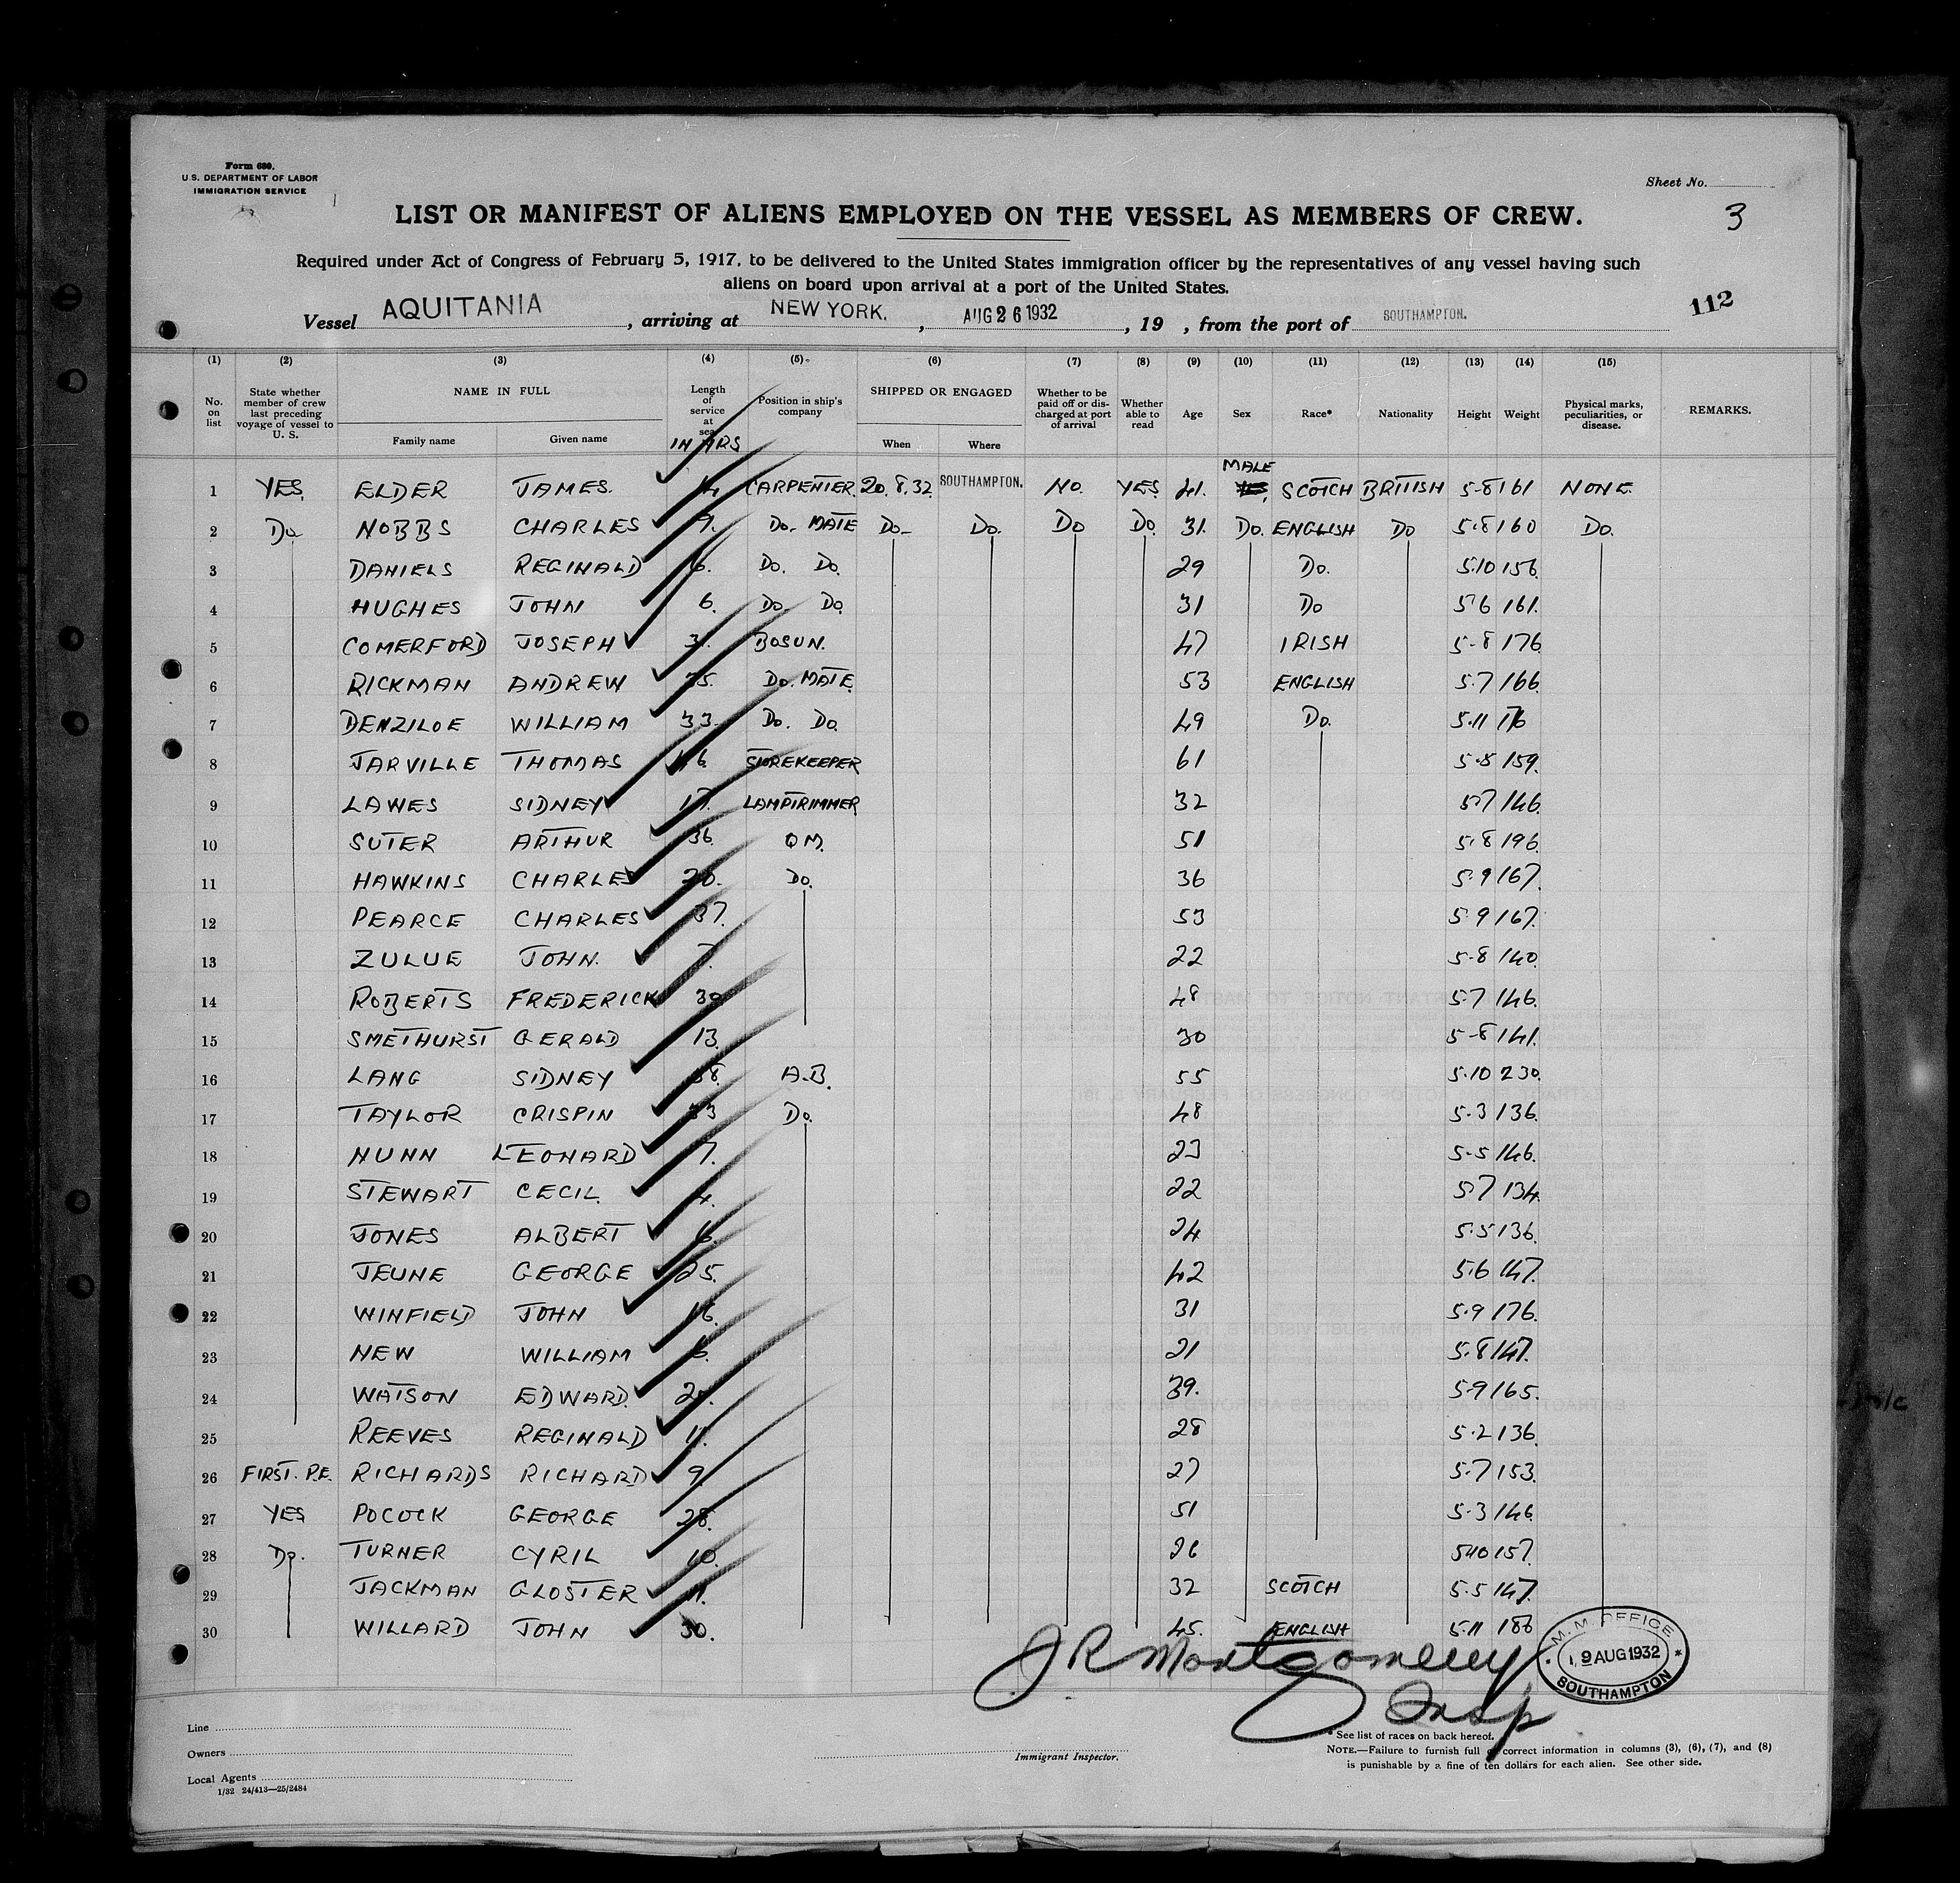 Form 680.
U.S. DEPARTMENT OF LABOR
IMMIGRATION SERVICE
Sheet No.
3
LIST OR MANIFEST OF ALIENS EMPLOYED ON THE VESSEL AS MEMBERS OF CREW.
Required under Act of Congress of February 5, 1917, to be delivered to the United States immigration officer by the representatives of any vessel having such
aliens on board upon arrival at a port of the United States.
112
Vessel AQUITANIA, arriving at NEW YORK., AUG 26 1932, 19 , from the port of SOUTHAMPTON.
(1) (2) (3) (4) (5) (6) (7) (8) (9) (10) (11) (12) (13) (14) (15)
No. on list State whether member of crew last preceding voyage of vessel to U. S. NAME IN FULL Family name Given name Length of service at sea IN YRS Position in ship's company SHIPPED OR ENGAGED When Where Whether to be paid off or discharged at port of arrival Whether able to read Age Sex Race* Nationality Height Weight Physical marks, peculiarities, or disease. REMARKS.
1 YES ELDER JAMES. CARPENTER 20.8.32 SOUTHAMPTON. NO. YES 41. MALE SCOTCH BRITISH 5-8 161 NONE.
2 Do NOBBS CHARLES 9. Do. MATE Do. Do. Do Do. 31. Do. ENGLISH Do 5.8 160 Do.
3 DANIELS REGINALD 6. Do. Do. 29 Do. 5.10 156
4 HUGHES JOHN 6. Do. Do. 31 Do 5.6 161.
5 COMERFORD JOSEPH BOSUN. 47 IRISH 5-8 176
6 RICKMAN ANDREW Do. MATE. 53 ENGLISH 5.7 166.
7 DENZILOE WILLIAM 33. Do. Do. 49 Do. 5.11
8 JARVILLE THOMAS STOREKEEPER 61 5.8 159.
9 LAWES SIDNEY 17. LAMPTRIMMER 32 5.7 146.
10 SUTER ARTHUR 36. QM. 51 5.8 196.
11 HAWKINS CHARLES 20. Do. 36 5.9 167.
12 PEARCE CHARLES 37. 53 5.9 167.
13 ZULUE JOHN. 7. 22 5-8 140.
14 ROBERTS FREDERICK 48 5.7 146.
15 SMETHURST GERALD 13. 30 5-8 141.
16 LANG SIDNEY 38. A.B. 55 5.10 230.
17 TAYLOR CRISPIN 33 Do. 48 5.3 136.
18 NUNN LEONARD 7. 23 5-5 146.
19 STEWART CECIL. 4. 22 5.7 134.
20 JONES ALBERT 6. 24 5.5 136.
21 JEUNE GEORGE 25. 42 5.6 147.
22 WINFIELD JOHN 16. 31 5.9 176.
23 NEW WILLIAM 6. 21 5.8 147.
24 WATSON EDWARD. 39. 5.9 165.
25 REEVES REGINALD 11. 28 5.2 136.
26 FIRST. P.E. RICHARDS RICHARD 9. 27 5.7 153.
27 YES POCOCK GEORGE 28. 51 5.3 146.
28 Do. TURNER CYRIL 10. 26 5.10 157.
29 JACKMAN GLOSTER 11. 32 SCOTCH 5.5 147.
30 WILLARD JOHN 30. 45. ENGLISH 5.11 186
J R Montgomery
Insp
M. M. OFFICE
19 AUG 1932
SOUTHAMPTON
Line
Owners
Local Agents
1/32 24/413—25/2484
Immigrant Inspector.
* See list of races on back hereof.
NOTE.—Failure to furnish full or correct information in columns (3), (6), (7), and (8)
is punishable by a fine of ten dollars for each alien. See other side.